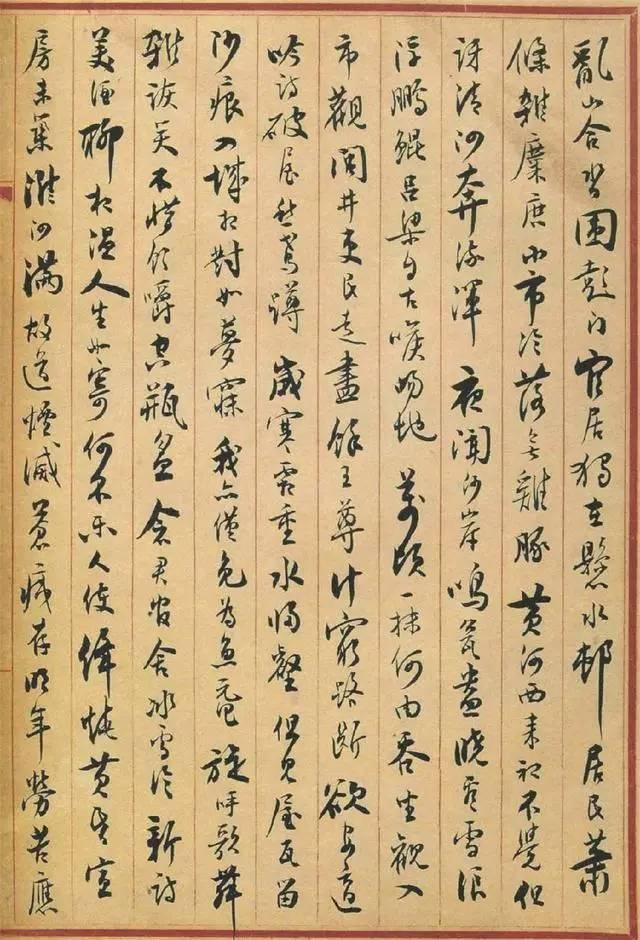 亂山合沓圍彭門官居獨在懸水邨居民蕭
條雜麋鹿小市冷落無雞豚黃河西來初不覺但
訝清泗奔流渾夜聞沙岸鳴瓮盎曉看雪浪
浮鵬鯤呂梁自古喉吻地萬頃一抹何由吞坐觀入
市觀閭井吏民走盡餘王尊計窮路斷欲安適
吟詩破屋愁鳶蹲歲寒霜重水歸壑但見屋瓦留
沙痕入城相對如夢寐我亦僅免為魚黿旋呼歌舞
雜詼笑不惜飲嚼空瓶盆念君官舍冰雪冷新詩
美酒聊相溫人生如寄何不樂使絳燒黃昏宣
房未築淮泗滿故道堙滅瘡痍存明年勞苦應